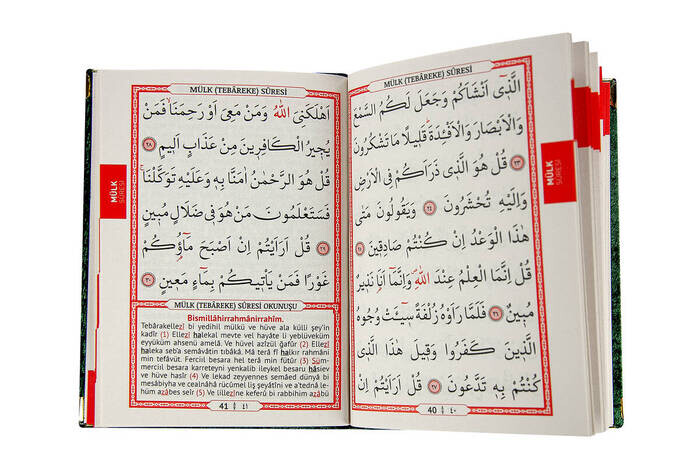 MÜLK (TEBÂREKE) SÛRESİ
اَلَّذٓى اَنْشَاَكُمْ وَجَعَلَ لَكُمُ السَّمْعَ
وَالْاَبْصَارَ وَالْاَفْئِدَةَ قَلٖيلًا مَا تَشْكُرُونَ
﴿٢٣﴾ قُلْ هُوَ الَّذٖى ذَرَاَكُمْ فِى الْاَرْضِ
وَاِلَيْهِ تُحْشَرُونَ ﴿٢٤﴾ وَيَقُولُونَ مَتٰى
هٰذَا الْوَعْدُ اِنْ كُنْتُمْ صَادِقٖينَ ﴿٢٥﴾
قُلْ اِنَّمَا الْعِلْمُ عِنْدَ اللّٰهِ وَاِنَّمَٓا اَنَا نَذٖيرٌ
مُبٖينٌ ﴿٢٦﴾ فَلَمَّا رَاَوْهُ زُلْفَةً سٖٓيـَٔتْ وُجُوهُ
الَّذٖينَ كَفَرُوا وَقٖيلَ هٰذَا الَّذٖى
كُنْتُمْ بِهٖ تَدَّعُونَ ﴿٢٧﴾ قُلْ اَرَاَيْتُمْ اِنْ
40 ٤٠
MÜLK
SÛRESİ
MÜLK (TEBÂREKE) SÛRESİ
اَهْلَكَنِىَ اللّٰهُ وَمَنْ مَعِىَ اَوْ رَحِمَنَا فَمَنْ
يُجٖيرُ الْكَافِرٖينَ مِنْ عَذَابٍ اَلٖيمٍ ﴿٢٨﴾
قُلْ هُوَ الرَّحْمٰنُ اٰمَنَّا بِهٖ وَعَلَيْهِ تَوَكَّلْنَا
فَسَتَعْلَمُونَ مَنْ هُوَ فٖى ضَلَالٍ مُبٖينٍ
﴿٢٩﴾ قُلْ اَرَاَيْتُمْ اِنْ اَصْبَحَ مَٓاؤُكُمْ
غَوْرًا فَمَنْ يَاْتٖيكُمْ بِمَٓاءٍ مَعٖينٍ ﴿٣٠﴾
MÜLK (TEBÂREKE) SÛRESİ OKUNUŞU
Bismillâhirrahmânirrahîm.
Tebârakellezî bi yedihil mülkü ve hüve ala külli şey'in
kadîr (1) Ellezî halekal mevte vel hayâte li yeblüveküm
eyyüküm ahsenü amelâ. Ve hüvel azîzül ğafûr (2) Ellezî
haleka seb'a semâvâtin tıbâkâ. Mâ terâ fî halkır rahmâni
min tefâvüt. Ferciıl besara hel terâ min fütûr (3) Sümmercıl besara karreteyni yenkalib ileykel besaru hâsiev
ve hüve hasîr (4) Ve lekad zeyyennes semâed dünyâ bi
mesâbîyha ve cealnâhâ rücûmel liş şeyâtîni ve a'tednâ lehüm azâbes seîr (5) Ve lillezîne keferû bi rabbihim azâbü
41 ٤١
MÜLK
SÛRESİ